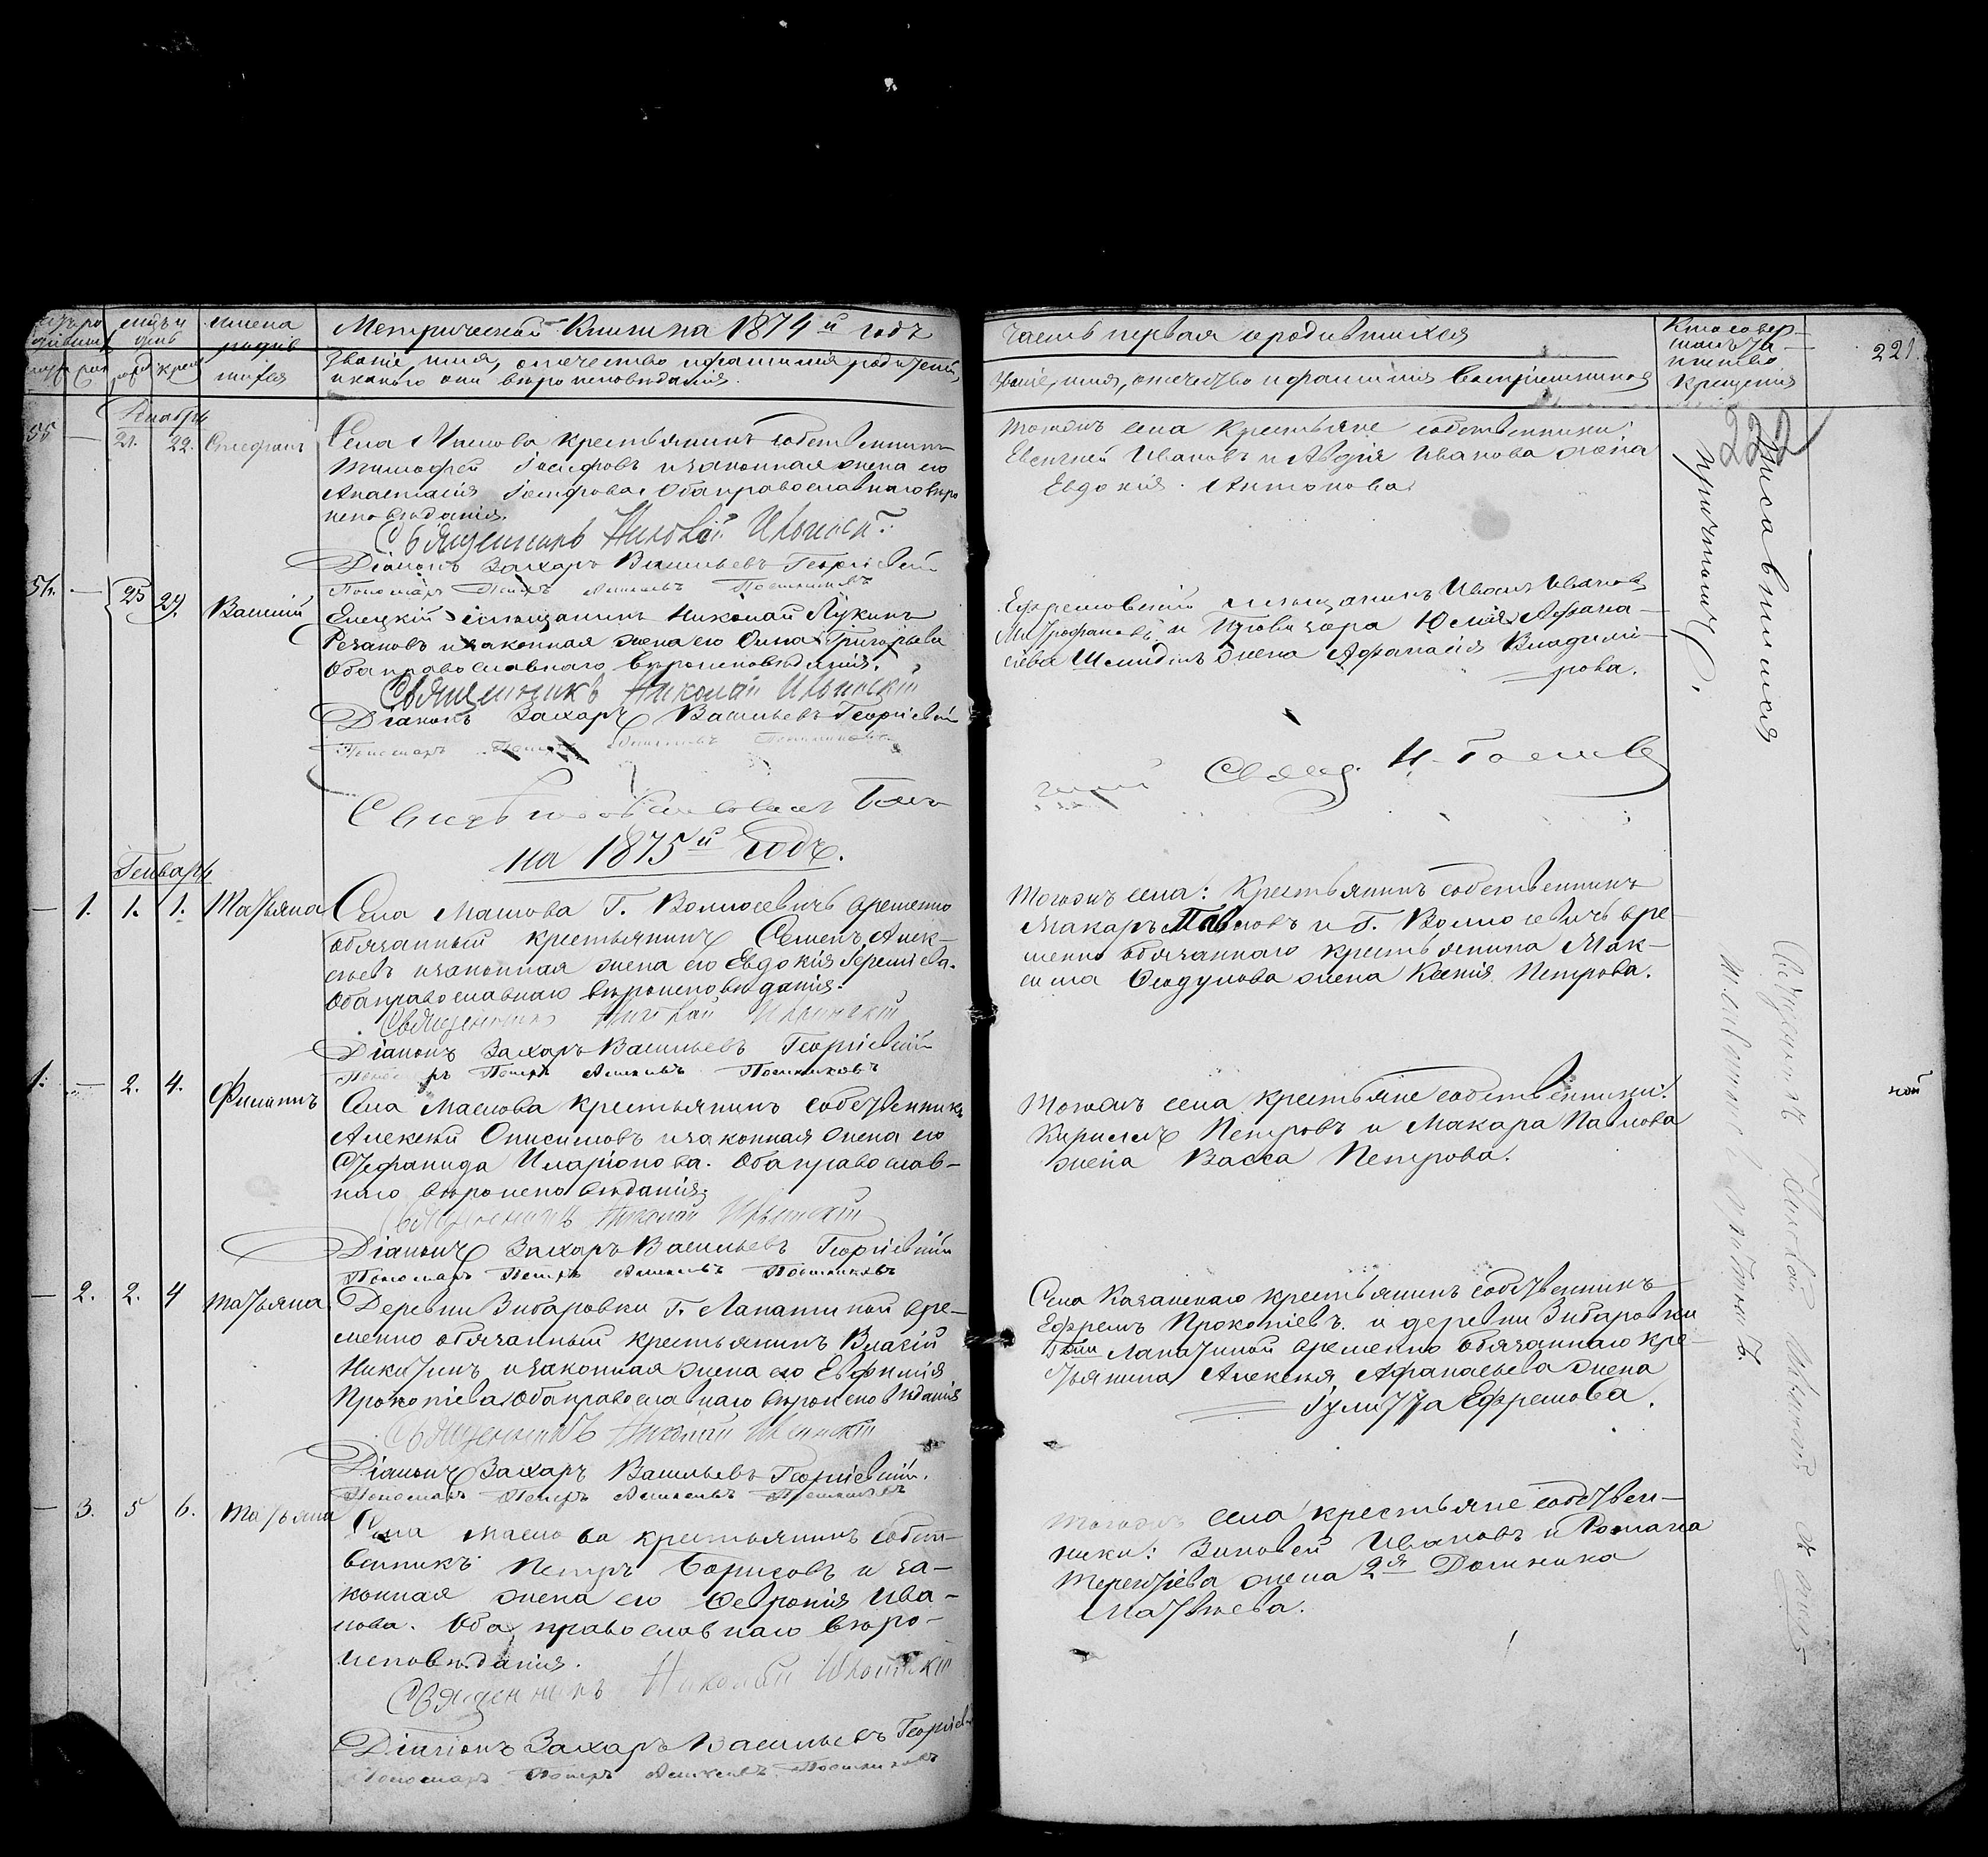 Метрической Книги на 1874й годъ
Часть первая о родившихся
221.
мцъ и день
имена родив шихся
Званіе, имя, отечество и фамилія родителей,
и какого они вѣроисповѣданія.
Званіе, имя, отечество и фамилія воспріемниковъ
Кто совер-
шалъ та-
инство
крещенія
Декабрь
55 — 21. 22. Стефанъ
Села Маслова крестьянинъ собственникъ
Тимофей Іосифовъ и законная жена его
Анастасія Іосифова. Оба православнаго вѣро
исповѣданія.
Священникъ Николай Ильинскій
Діаконъ Захаръ Васильевъ Георгіевскій
Пономарь Петръ
Тогожъ села крестьяне собственники:
Евсигней Ивановъ и Авдія Иванова жена
Евдокія Антонова.
222
56. — 25 29. Василій
Елецкій мѣщанинъ Николай Лукинъ
Резановъ и законная жена его Анна Григорьева
Оба православнаго вѣроисповѣданія.
Священникъ Николай Ильинскій
Діаконъ Захаръ Васильевъ Георгіевскій
Пономарь Петръ
Ефремовскій мѣщанинъ Иванъ Иванов
Митрофановъ и Провизора Юлія Афана-
сіева Шмидтъ жена Афанасія Владимі-
рова.
Свящ. И.
на 1875й годъ.
Генварь
— 1. 1. 1. Татьяна
Села Маслова Г. Волносевичъ временно
обязанный крестьянинъ Семенъ Алек-
сѣевъ и законная жена его Евдокія Іереміева.
Оба православнаго вѣроисповѣданія.
Священникъ Николай Ильинскій
Діаконъ Захаръ Васильевъ Георгіевскій
Пономарь Петръ
Тогожъ села: Крестьянинъ собственникъ
Макаръ Павловъ и Г. Волносевичъ вре-
менно обязаннаго крестьянина Мак-
сима Ѳедулова жена Ксенія Петрова.
1. — 2. 4. Филиппъ
Села Маслова крестьянинъ собственникъ
Алексѣй Онисимовъ и законная жена его
Стефанида Иларіонова. Оба православ-
наго вѣроисповѣданія.
Священникъ Николай Ильинскій
Діаконъ Захаръ Васильевъ Георгіевскій
Пономарь Петръ
Тогожъ села крестьяне собственники:
Кириллъ Петровъ и Макара Павлова
жена Васса Петрова.
— 2. 2. 4 Татьяна
Деревни Зибаровки Г. Лапатиной вре-
менно обязанный крестьянинъ Власій
Никитинъ и законная жена его Евфимія
Прокопіева. Оба православнаго вѣроисповѣданія
Священникъ Николай Ильинскій
Діаконъ Захаръ Васильевъ Георгіевскій.
Пономарь Петръ
Села Казанскаго крестьянинъ собственникъ
Ефремъ Прокопіевъ. и деревни Зибаровки
Гжи Лапатиной временно обязаннаго кре-
стьянина Алексѣя Афанасьева жена
Іулитта Ефремова.
— 3. 5 6. Татьяна
Села Маслова крестьянинъ собст-
венникъ Петръ Борисовъ и за-
конная жена его Ѳевронія Ива-
нова. Оба православнаго вѣро-
исповѣданія.
Священникъ Николай Ильинскій
Діаконъ Захаръ Васильевъ Георгіев
Пономарь Петръ
Тогожъ села крестьяне собствен-
ники: Зиновей Ивановъ и Романа
Терентіева жена 2я Домника
Матвѣева.
Священникъ Николай Ильинскій
съ